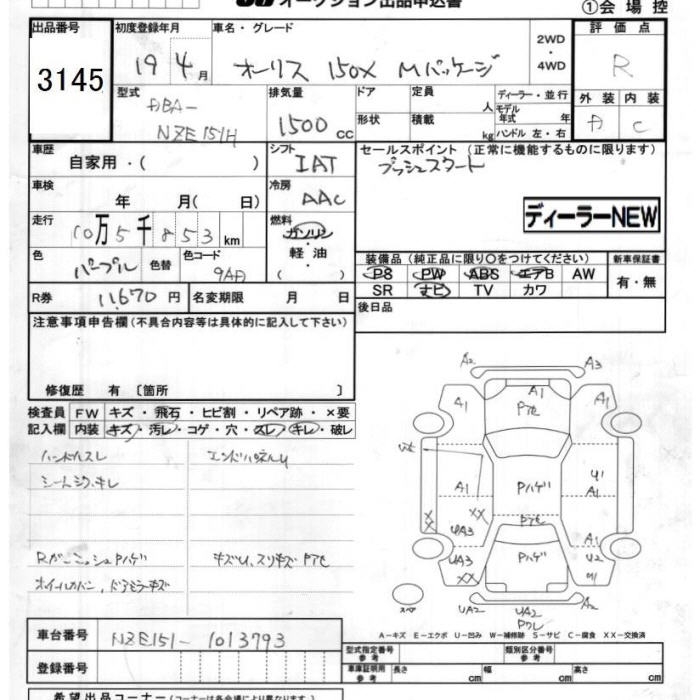 オークション出品申込書
①会場控
出品番号 初度登録年月 車名・グレード 2WD・4WD 評価点
3145 19 4月 オーリス 150X Mパッケージ R
型式 排気量 ドア 定員 人 ディーラー・並行 外装 内装
DBA-NZE151H 1500cc 形状 積載 kg モデル年式 年 ハンドル 左・右 A C
車歴 シフト セールスポイント (正常に機能するものに限ります)
自家用・( ) IAT プッシュスタート
車検 年 月( 日) 冷房 AAC
ディーラーNEW
走行 10万5千853km 燃料 ガソリン・軽油 ( )
色 パープル 色替 色コード 9AD
装備品 (純正品に限り○をつけてください) 新車保証書
PS PW ABS エアB AW 有・無
SR ナビ TV カワ
R券 11,670円 名変期限 月 日
後日品
注意事項申告欄(不具合内容等は具体的に記入して下さい)
修復歴 有 〔箇所 〕
検査員記入欄 FW キズ・飛石・ヒビ割・リペア跡・×要
内装 キズ・汚レ・コゲ・穴・スレ・キレ・破レ
ハンドルスレ エンドパネルU
シートシワ、キレ
キズU、スリキズ Pアセ
ホイールカバー、ドアミラーキズ
A2 A3
A1 A1 Pアセ A1
A1 Pハゲ U1 A1
XX XX UA3 Pアセ A1
UA3 XX Pハゲ U2
スペア UA2 UA2 A2
A-キズ E-エクボ U-凹み W-補修跡 S-サビ C-腐食 XX-交換済
車台番号 NZE151-1013793
登録番号
型式指定番号 参考 類別区分番号 参考
車庫証明用 参考 長さ cm 幅 cm 高さ cm
希望出品コーナー(コーナーは各会場により異なります)